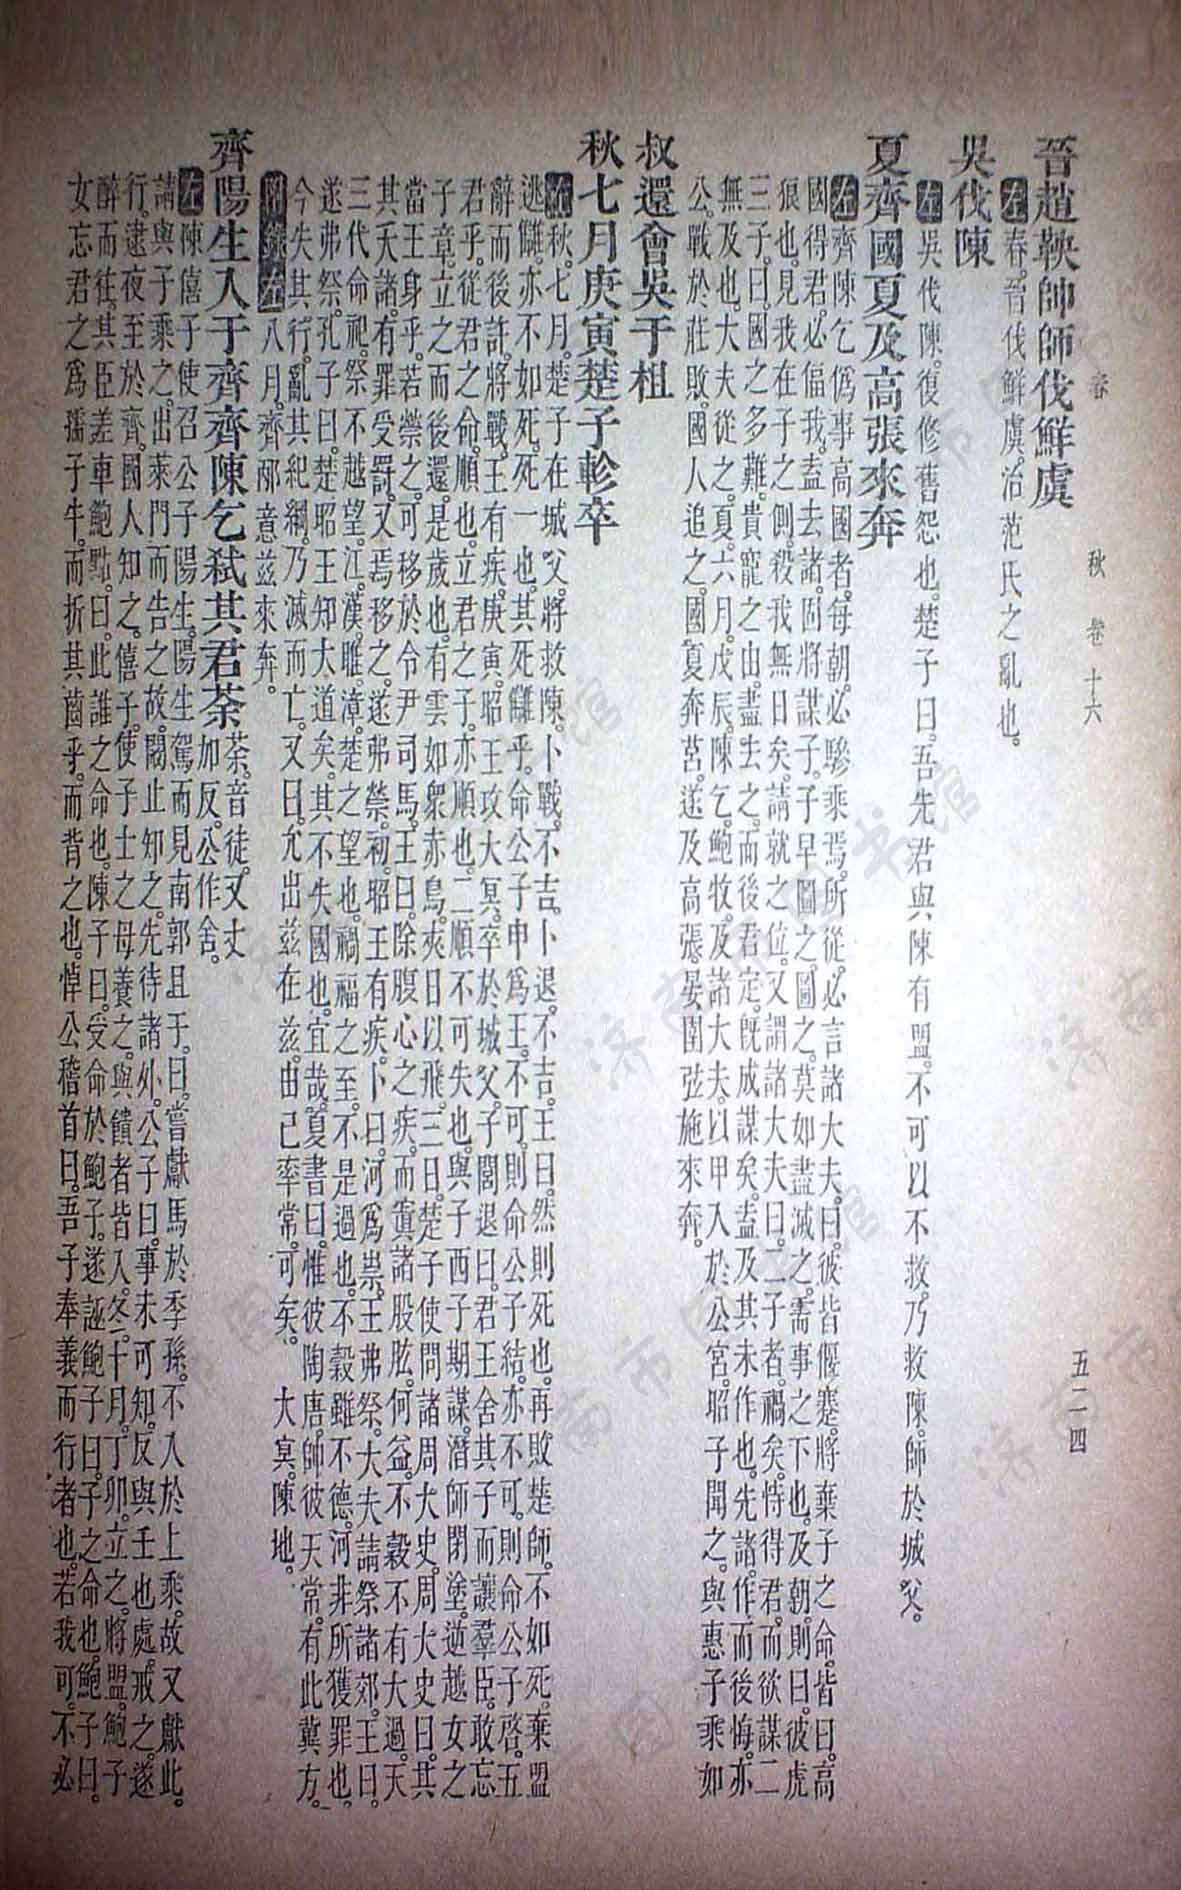 春 秋 卷十六 五二四
晉趙鞅帥師伐鮮虞
左春。晉伐鮮虞。治范氏之亂也。
吳伐陳
左吳伐陳。復修舊怨也。楚子曰。吾先君與陳有盟。不可以不救。乃救陳。師於城父。
夏齊國夏及高張來奔
左齊陳乞僞事高國者。每朝。必驂乘焉。所從。必言諸大夫。曰。彼皆偃蹇。將棄子之命。皆曰。高
國得君。必偪我。盍去諸。固將謀子。子早圖之。圖之。莫如盡滅之。需事之下也。及朝。則曰。彼虎
狼也。見我在子之側。殺我無日矣。請就之位。又謂諸大夫曰。二子者。禍矣。恃得君。而欲謀二
三子。曰。國之多難。貴寵之由。盡去之。而後君定。旣成謀矣。盍及其未作也。先諸。作而後悔。亦
無及也。大夫從之。夏。六月。戊辰。陳乞。鮑牧。及諸大夫。以甲入於公宮。昭子聞之。與惠子乘如
公。戰於莊。敗。國人追之。國夏奔莒。遂及高張。晏圉弦施來奔。
叔還會吳于柤
秋七月庚寅楚子軫卒
左秋。七月。楚子在城父。將救陳。卜戰。不吉。卜退。不吉。王曰。然則死也。再敗楚師。不如死。棄盟
逃讎。亦不如死。死一也。其死讎乎。命公子申爲王。不可。則命公子結。亦不可。則命公子啓。五
辭而後許。將戰。王有疾。庚寅。昭王攻大冥。卒於城父。子閭退曰。君王舍其子而讓羣臣。敢忘
君乎。從君之命。順也。立君之子。亦順也。二順不可失也。與子西子期謀。潛師閉塗。逆越女之
子章。立之而後還。是歲也。有雲如衆赤鳥。夾日以飛。三日。楚子使問諸周大史。周大史曰。其
當王身乎。若禜之。可移於令尹司馬。王曰。除腹心之疾。而寘諸股肱。何益。不穀不有大過。天
其夭諸。有罪受罰。又焉移之。遂弗禜。初。昭王有疾。卜曰。河爲祟。王弗祭。大夫請祭諸郊。王曰。
三代命祀。祭不越望。江。漢。睢。漳。楚之望也。禍福之至。不是過也。不穀雖不德。河非所獲罪也。
遂弗祭。孔子曰。楚昭王知大道矣。其不失國也。宜哉。夏書曰。惟彼陶唐。帥彼天常。有此冀方。
今失其行。亂其紀綱。乃滅而亡。又曰。允出茲在茲。由己率常。可矣。 大冥。陳地。
附錄左八月。齊邴意茲來奔。
齊陽生入于齊齊陳乞弒其君荼 荼。音徒。又丈加反。公作舍。
左陳僖子使召公子陽生。陽生駕而見南郭且于。曰。嘗獻馬於季孫。不入於上乘。故又獻此。
請與子乘之。出萊門而告之故。闞止知之。先待諸外。公子曰。事未可知。反與壬也處。戒之。遂
行。逮夜至於齊。國人知之。僖子使子士之母養之。與饋者皆入。冬。十月。丁卯。立之。將盟。鮑子
醉而往。其臣差車鮑點曰。此誰之命也。陳子曰。受命於鮑子。遂誣鮑子曰。子之命也。鮑子曰。
女忘君之爲孺子牛。而折其齒乎。而背之也。悼公稽首曰。吾子奉義而行者也。若我可。不必